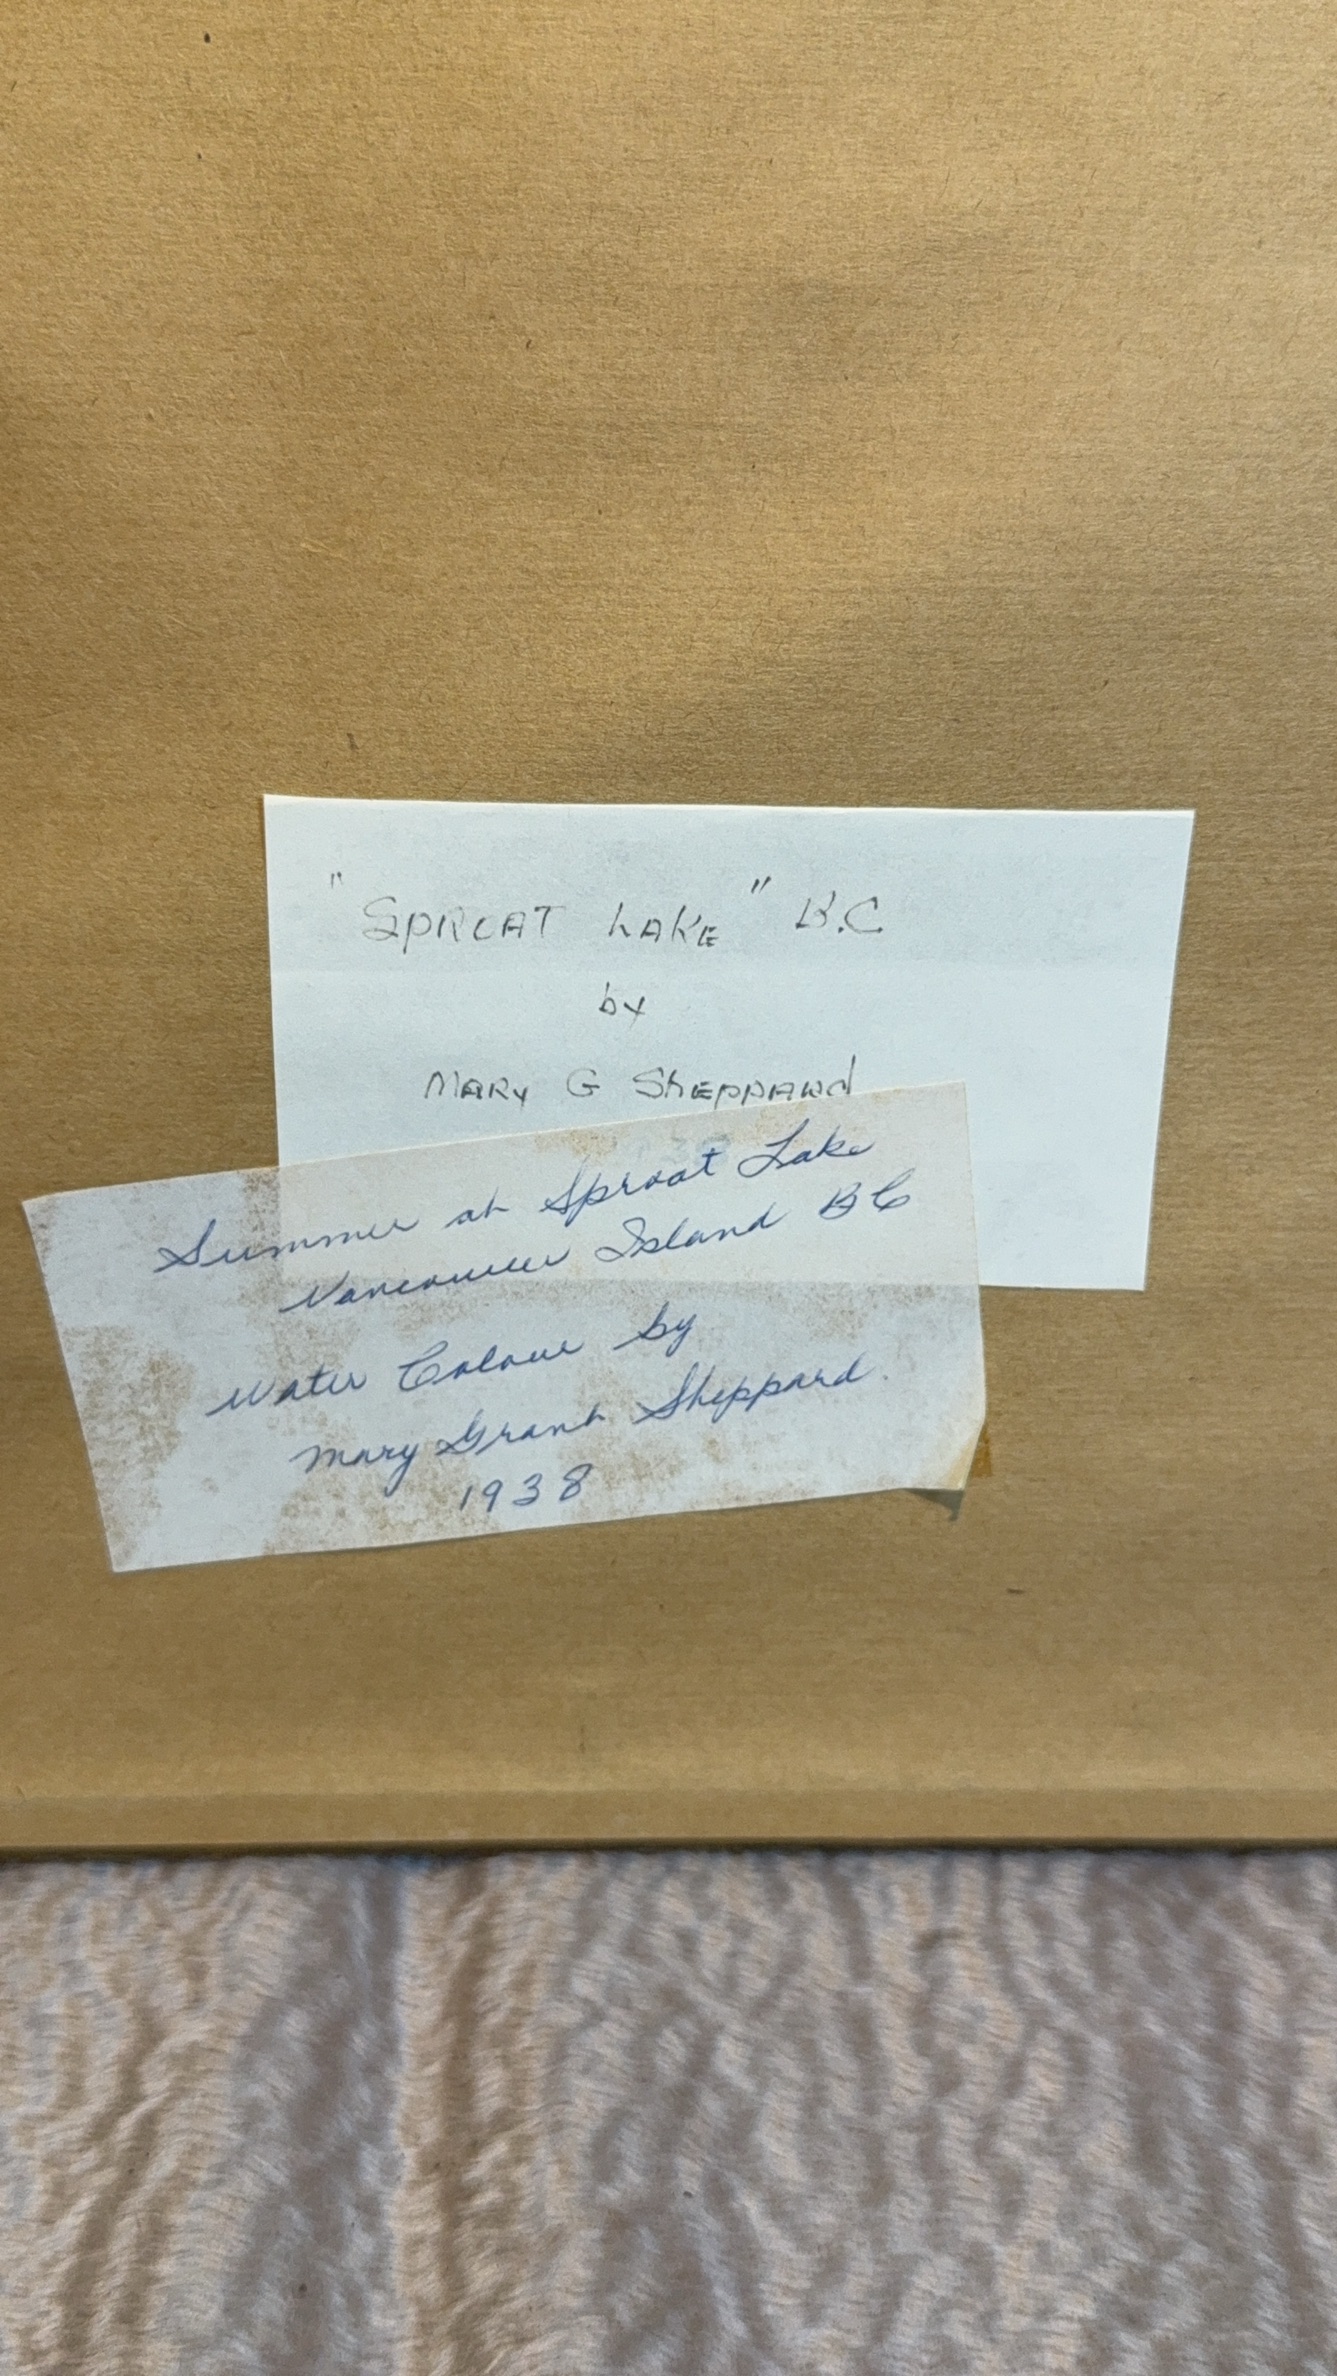 "SPROAT LAKE" B.C
by
MARY G ShEPPARd
Summer at Sproat Lake
Vancouver Island BC
Water Colour by
Mary Grant Sheppard.
1938